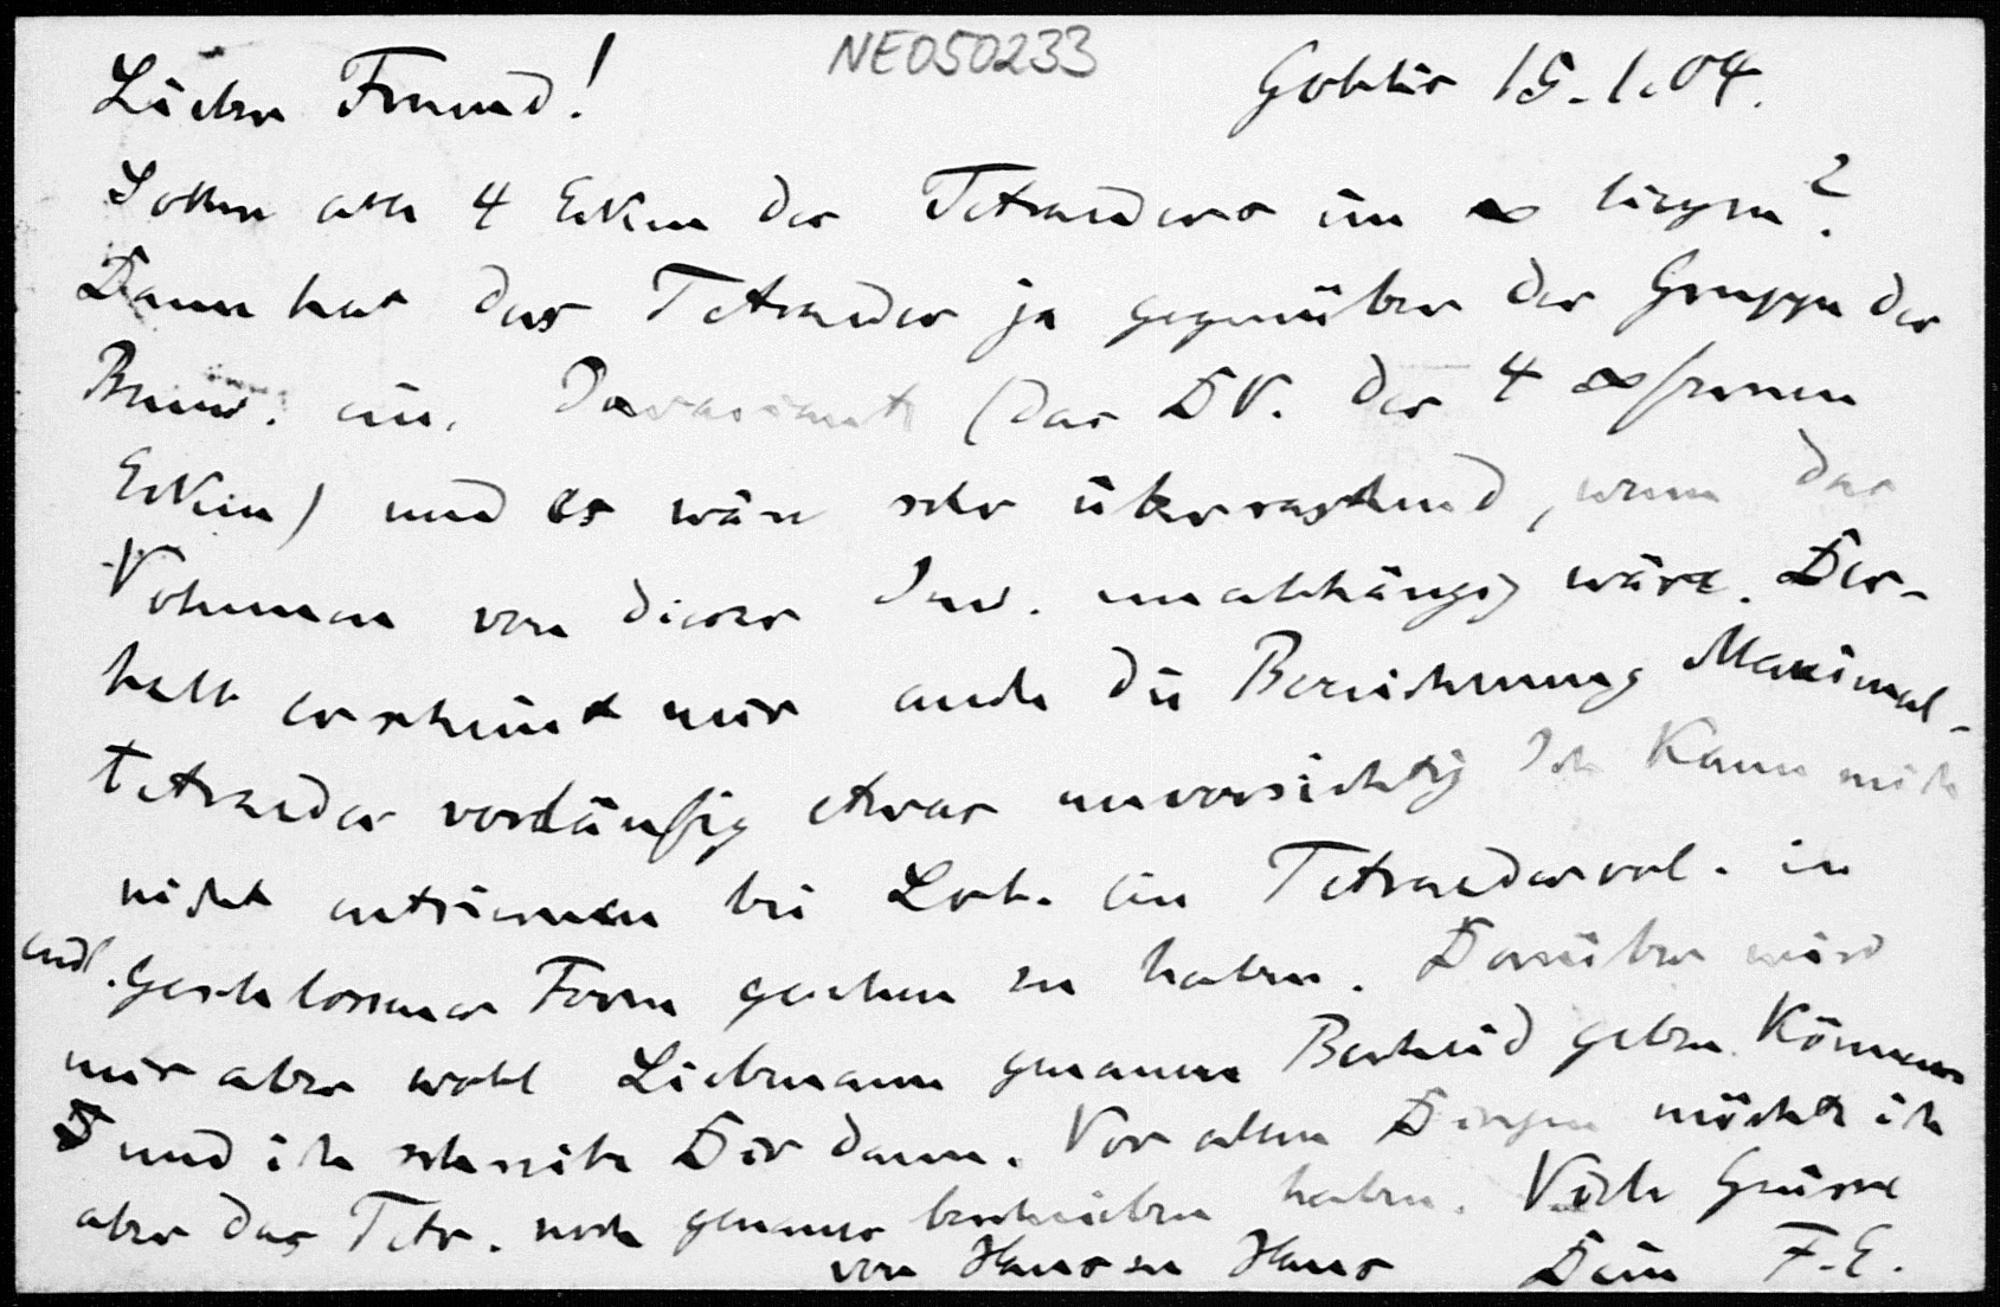 NE050233
Lieber Freund! Gohlis 15.1.04.
Sollen alle 4 Ecken des Tetraeders im ∞ liegen?
Dann hat das Tetraeder ja gegenüber der Gruppe der
Beww. ein. Invariante (das DV. der 4 ∞fernen
Ecken) und es wäre sehr überraschend, wenn das
Volumen von dieser Inv. unabhängig wäre. Des-
halb erscheint mir auch die Bezeichnung Maximal-
tetraeder vorläufig etwas unvorsichtig Ich kann mich
nicht entsinnen bei Lob. ein Tetraedervol. in
endl. geschlossener Form gesehen zu haben. Darüber wird
mir aber wohl Liebmann genauen Bescheid geben können
und ich schreibe Dir dann. Vor allen Dingen möchte ich
aber das Tetr. noch genauer beschrieben haben. Viele Grüsse
von Haus zu Haus Dein F.E.